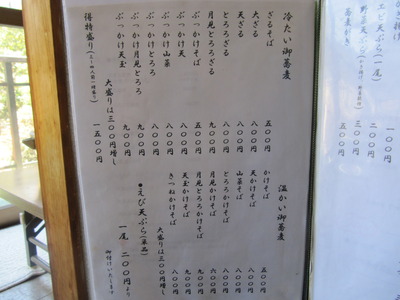 冷たい御蕎麦
ざるそば 五〇〇円
大ざる 八〇〇円
天ざる 八〇〇円
とろろざる 八〇〇円
月見とろろざる 九〇〇円
ぶっかけそば 五〇〇円
ぶっかけ天 八〇〇円
ぶっかけ山菜 八〇〇円
ぶっかけとろろ 八〇〇円
ぶっかけ月見とろろ 九〇〇円
ぶっかけ天とろろ
大盛りは三〇〇円増し
得特盛り 一五〇〇円
温かい御蕎麦
かけそば 五〇〇円
天かけそば 八〇〇円
山菜そば 八〇〇円
とろろかけそば 八〇〇円
月見かけそば 六〇〇円
月見とろろかけそば 九〇〇円
天玉かけそば 九〇〇円
きつねかけそば 八〇〇円
大盛りは三〇〇円増し
●えび天ぷら(単品)
一尾 二〇〇円より
御付けいたします
エビ天ぷら(一尾) 二〇〇円
野菜天ぷら 三〇〇円
蕎麦がき 五〇〇円
一〇〇円